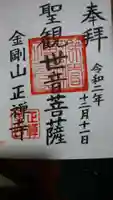 奉拝
令和二年
十二月十一日
聖観世音菩薩
金剛山 正禅寺